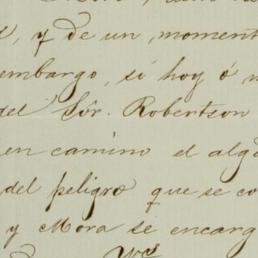 , y de un, moment
embargo, si hoy ó
del Sôr. Robertson
en camino el algo
del peligro que se co
y Mora se encarg